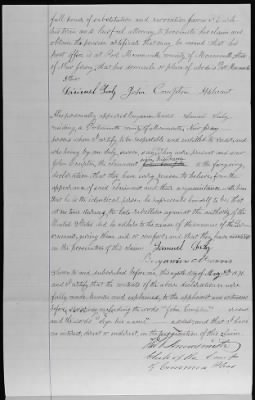 full power of substitution and revocation
his true and lawful attorney to prosecute his claim and
obtain the pension certificate that may be issued that his
post office is at Port Monmouth county of Monmouth State
of New Jersey, that his domicile or place of abode is Port Monmouth
Samuel Seely John Compton Applicant
Also personally appeared Benjamin and Samuel Seely
residing in Port Monmouth county of Monmouth, New Jersey
persons whom I certify to be respectable and entitled to credit and
who being by me duly sworn, say they were present and saw
John Compton, the claimant to the foregoing
declaration that they have every reason to believe from the
appearance of said claimant and their acquaintance with him
that he is the identical person he represents himself to be that
at no time during the late rebellion against the authority of the
United States did he adhere to the cause of the enemies of the
government, giving them aid or comfort and that they have no interest
in the prosecution of this claim. Samuel Seely
Benjamin
Sworn to and subscribed before me, this day of May 1871
and I certify that the contents of the above declaration were
fully made known and explained to the applicant and witnesses
before including the words "John Compton"
and the words "sign his name" added and that I have
no interest, direct or indirect, in the prosecution of this claim
Clerk of the Court
of Common Pleas